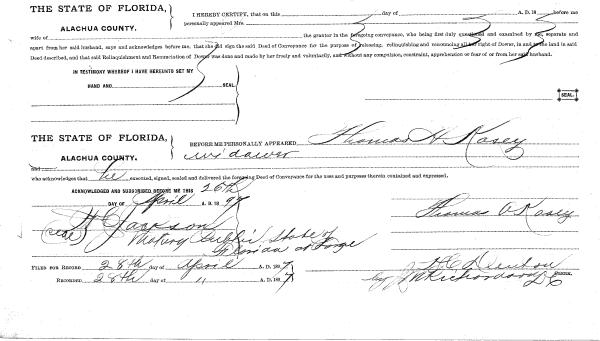 THE STATE OF FLORIDA,
ALACHUA COUNTY.
I HEREBY CERTIFY, that on this day of A. D. 18 before me
personally appeared Mrs.
wife of the grantor in the foregoing conveyance, who being first duly questioned and examined by me, separate and
apart from her said husband, says and acknowledges before me, that she did sign the said Deed of Conveyance for the purpose of releasing, relinquishing and renouncing all her right of Dower, in and to the land in said
Deed described, and that said Relinquishment and Renunciation of Dower was done and made by her freely and voluntarily, and without any compulsion, constraint, apprehension or fear of or from her said husband.
IN TESTIMONY WHEREOF I HAVE HEREUNTO SET MY
HAND AND SEAL
SEAL.
THE STATE OF FLORIDA,
ALACHUA COUNTY.
BEFORE ME PERSONALLY APPEARED Thomas H Kasey
widower
and
who acknowledges that he executed, signed, sealed and delivered the foregoing Deed of Conveyance for the uses and purposes therein contained and expressed.
ACKNOWLEDGED AND SUBSCRIBED BEFORE ME THIS 26th
DAY OF April A. D. 1897
Thomas Kasey
(Seal) Jackson
Notary Public State of
Florida at Large
FILED FOR RECORD 28th day of April A. D. 1897
RECORDED 28th day of " A. D. 1897
H C Denton CLERK.
by Richardson D C